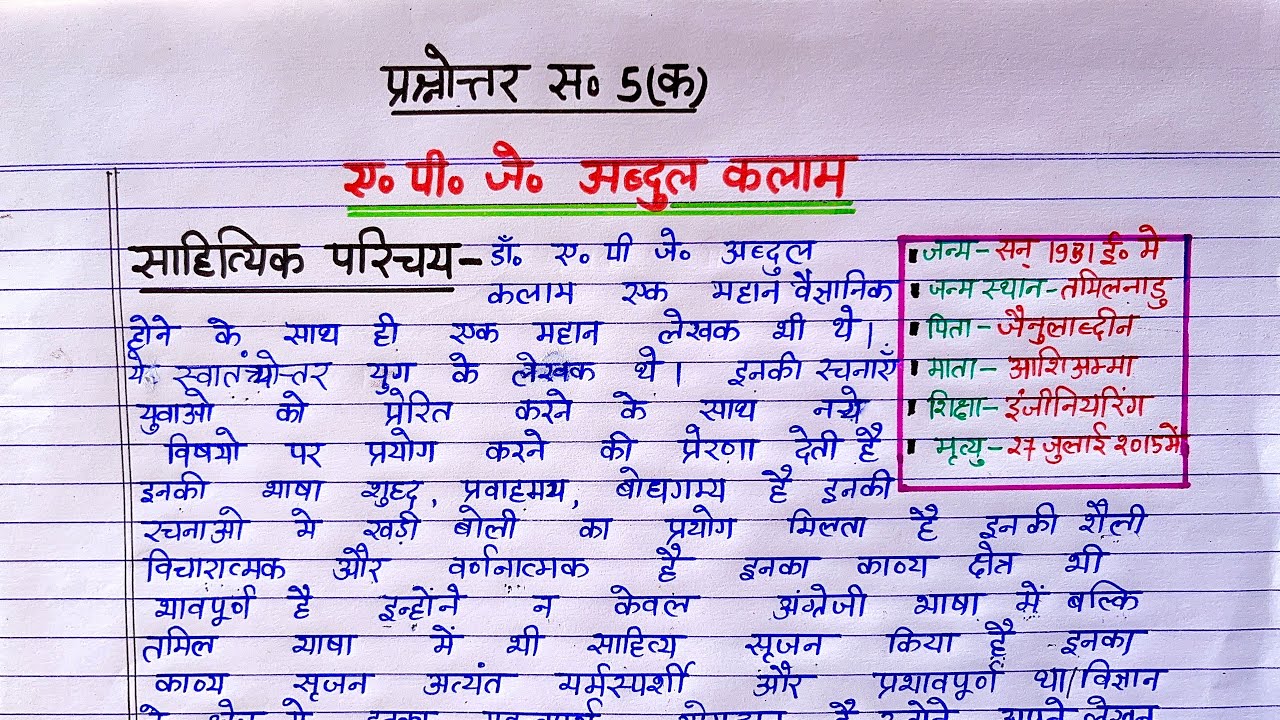 प्रश्नोत्तर स० 5(क)
ए० पी० जे० अब्दुल कलाम
साहित्यिक परिचय- डाँ० ए० पी जे० अब्दुल
कलाम एक महान वैज्ञानिक
होने के साथ ही एक महान लेखक भी थे।
ये स्वातंत्र्योत्तर युग के लेखक थे। इनकी रचनाएँ
युवाओ को प्रेरित करने के साथ नये
विषयो पर प्रयोग करने की प्रेरणा देती है
इनकी भाषा शुध्द, प्रवाहमय, बोधगम्य है इनकी
रचनाओ मे खड़ी बोली का प्रयोग मिलता है इनकी शैली
विचारात्मक और वर्णनात्मक है इनका काव्य क्षेत्र भी
भावपूर्ण है इन्होंने न केवल अंग्रेजी भाषा में बल्कि
तमिल भाषा में भी साहित्य सृजन किया है इनका
काव्य सृजन अत्यंत मर्मस्पर्शी और प्रभावपूर्ण था/विज्ञान
जन्म- सन् 1931 ई० मे
जन्म स्थान- तमिलनाडु
पिता- जैनुलाब्दीन
माता- आशिअम्मा
शिक्षा- इंजीनियरिंग
मृत्यु- 27 जुलाई 2015 में